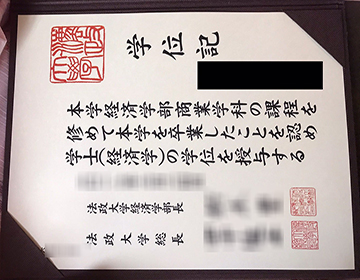 学位記
本学経済学部商業学科の課程を
修めて本学を卒業したことを認め
学士(経済学)の学位を授与する
法政大学経済学部長
法政大学総長